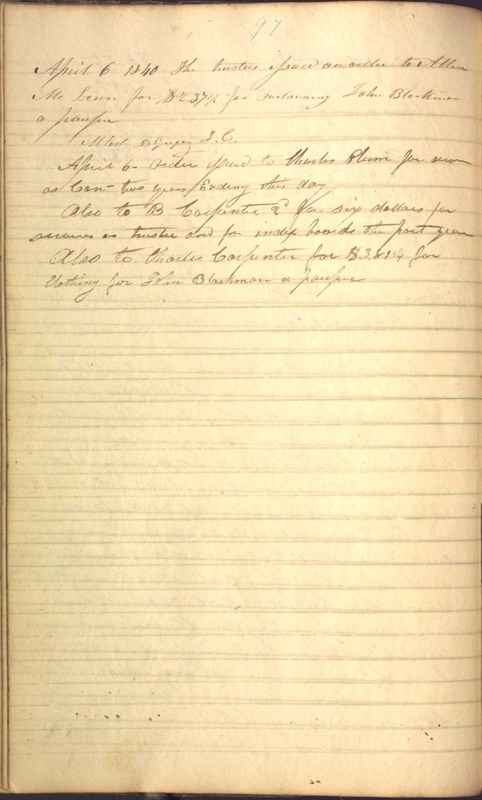 97
April 6 1840 The trustees issued an order to Allen
Mc Lean for $2.37½ for sustaining John Blackman
a pauper
Attest T.C.
April 6 - order issued to Charles Plum for
as Con- two years Ending this day
Also to B Carpenter 2d for six dollars for
services as trustee and for index boards the past year
Also to Charles Carpenter for $3.81¼ for
Clothing for John Blackman a pauper